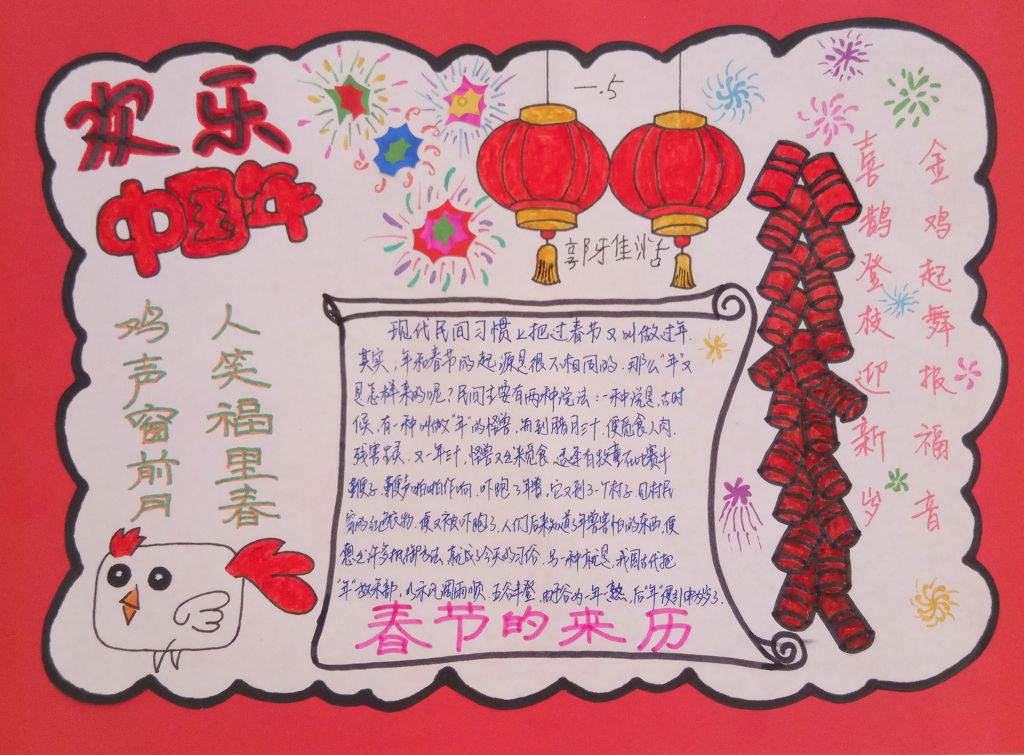 欢乐
中国年
一.5
郭雅佳
人笑福里春
鸡声窗前月
金鸡起舞报福音
喜鹊登枝迎新岁
现代民间习惯上把过春节又叫做过年.
其实,年和春节的起源是很不相同的.那么"年"又
是怎样来的呢?民间主要有两种说法:一种说是,古时
候,有一种叫做"年"的怪兽,每到腊月三十,便觅食人肉,
残害生灵.又一年三十,怪兽又出来觅食,适逢有牧童在比赛牛
鞭子,鞭声啪啪作响,吓跑了年兽,它又到了一个村子,见村民
家的红色衣物,便又被吓跑了.人们后来知道了年兽害怕的东西,便
想出许多抵御方法,就成了今天的习俗.另一种就是,我国古代把
"年"放禾部,以示风调雨顺,五谷丰登.谷为一年一熟,后"年"便引申为岁了.
春节的来历